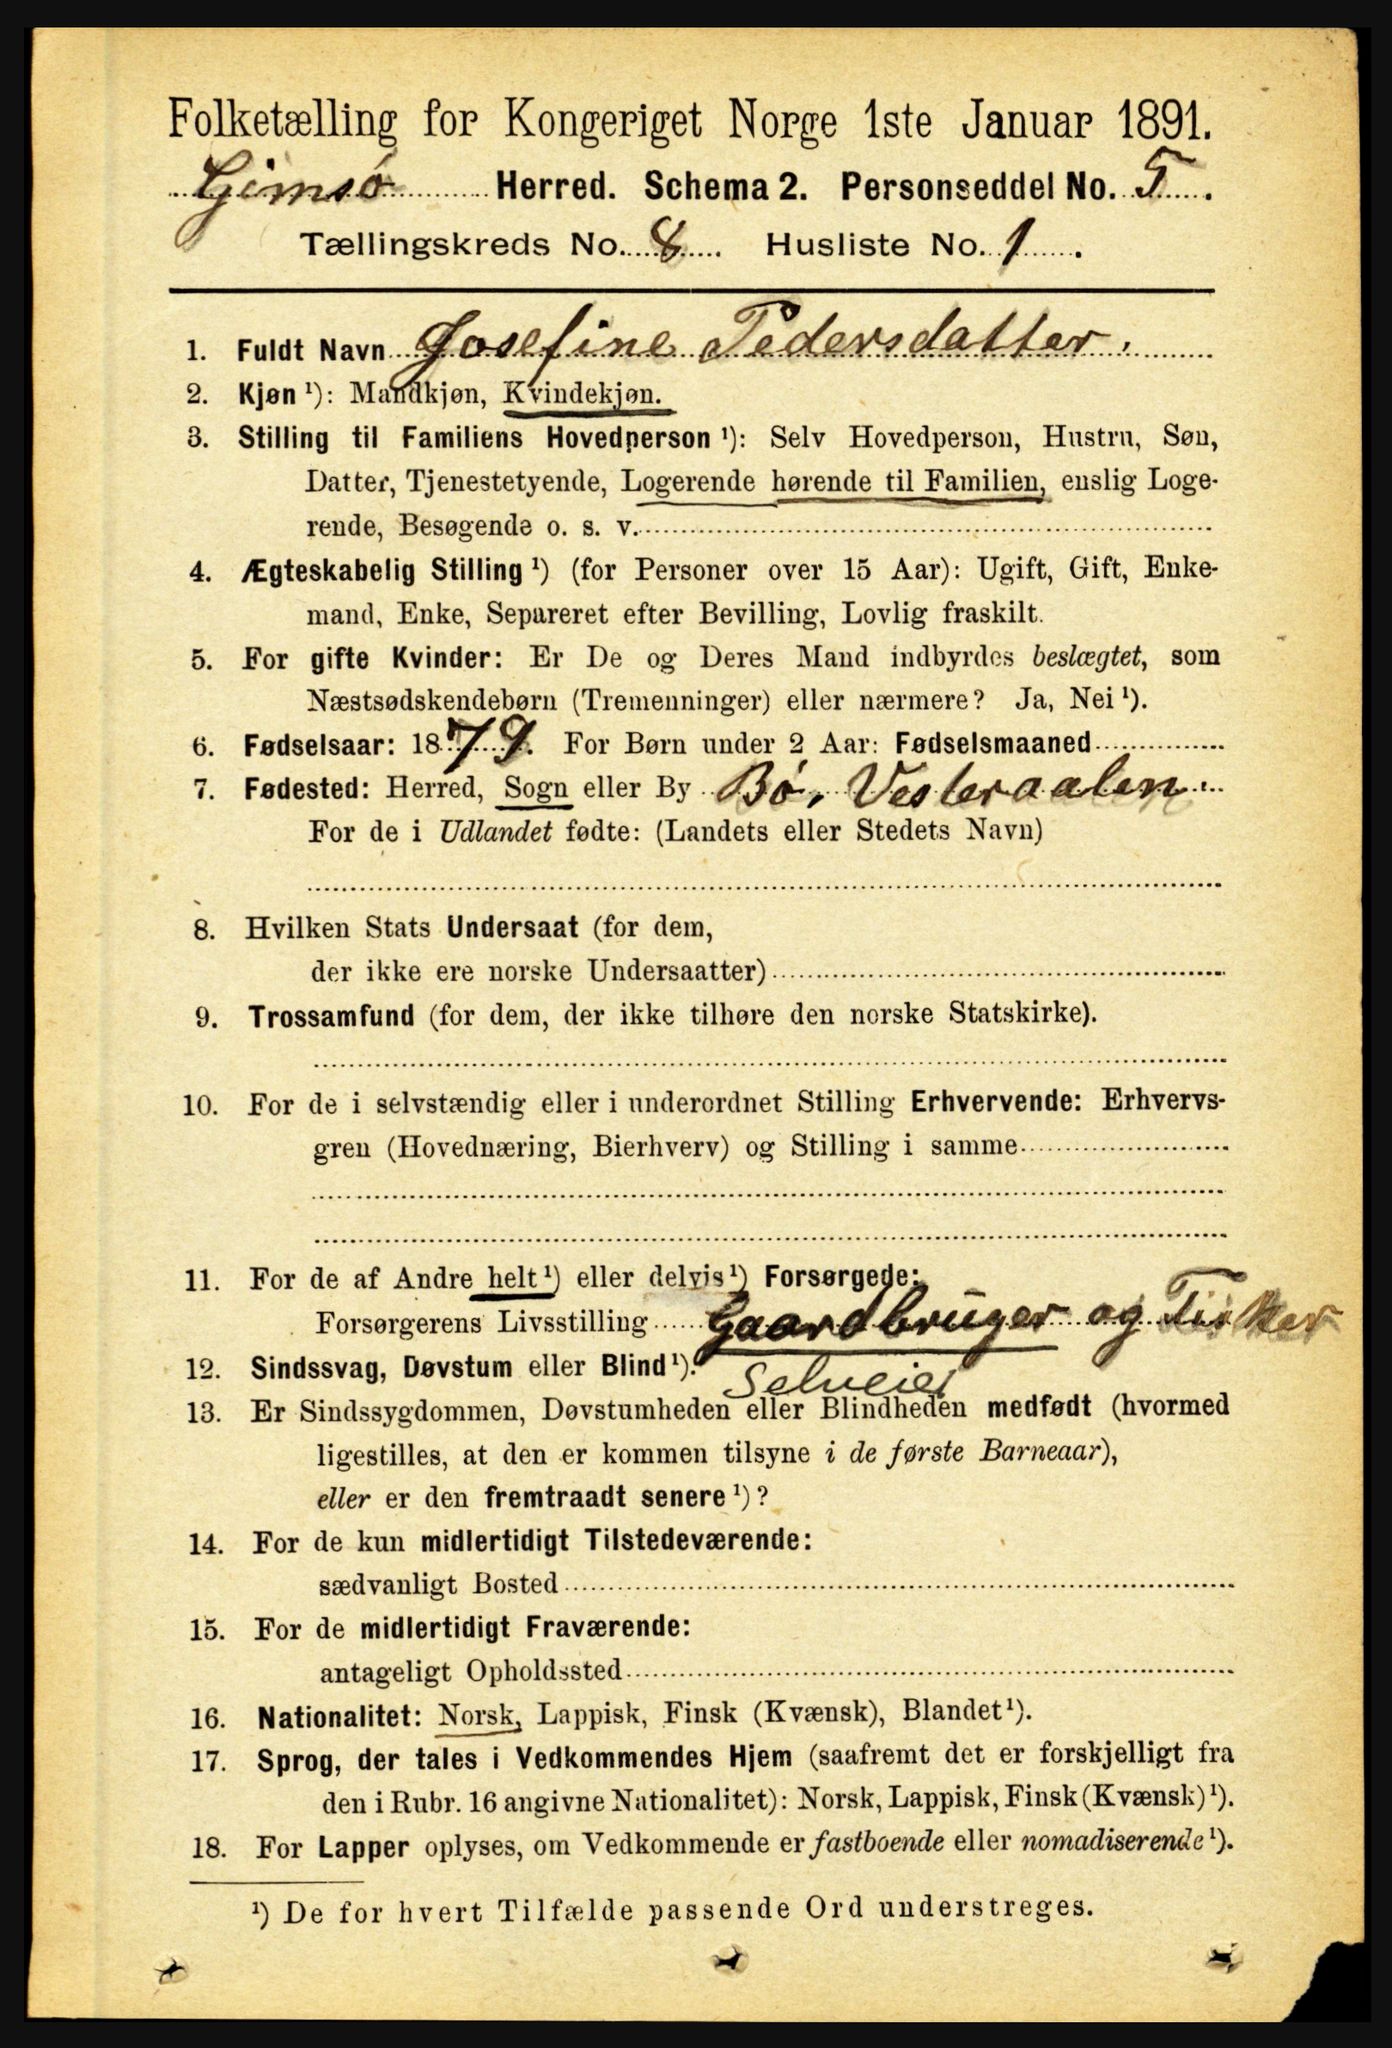 Folketælling for Kongeriget Norge 1ste Januar 1891.
Gimsø Herred. Schema 2. Personseddel No. 5.
Tællingskreds No. 8. Husliste No. 1.
1. Fuldt Navn Josefine Pedersdatter.
2. Kjøn ¹): Mandkjøn, Kvindekjøn.
3. Stilling til Familiens Hovedperson ¹): Selv Hovedperson, Hustru, Søn,
Datter, Tjenestetyende, Logerende hørende til Familien, enslig Loge-
rende, Besøgende o. s. v.
4. Ægteskabelig Stilling ¹) (for Personer over 15 Aar): Ugift, Gift, Enke-
mand, Enke, Separeret efter Bevilling, Lovlig fraskilt.
5. For gifte Kvinder: Er De og Deres Mand indbyrdes beslægtet, som
Næstsødskendebørn (Tremenninger) eller nærmere? Ja, Nei ¹).
6. Fødselsaar: 1879. For Børn under 2 Aar: Fødselsmaaned
7. Fødested: Herred, Sogn eller By Bø, Vesteraalen.
For de i Udlandet fødte: (Landets eller Stedets Navn)
8. Hvilken Stats Undersaat (for dem,
der ikke ere norske Undersaatter)
9. Trossamfund (for dem, der ikke tilhøre den norske Statskirke).
10. For de i selvstændig eller i underordnet Stilling Erhvervende: Erhvervs-
gren (Hovednæring, Bierhverv) og Stilling i samme
11. For de af Andre helt ¹) eller delvis ¹) Forsørgede:
Forsørgerens Livsstilling Gaardbruger og Fisker
12. Sindssvag, Døvstum eller Blind ¹). Selveier
13. Er Sindssygdommen, Døvstumheden eller Blindheden medfødt (hvormed
ligestilles, at den er kommen tilsyne i de første Barneaar),
eller er den fremtraadt senere ¹)?
14. For de kun midlertidigt Tilstedeværende:
sædvanligt Bosted
15. For de midlertidigt Fraværende:
antageligt Opholdssted
16. Nationalitet: Norsk, Lappisk, Finsk (Kvænsk), Blandet ¹).
17. Sprog, der tales i Vedkommendes Hjem (saafremt det er forskjelligt fra
den i Rubr. 16 angivne Nationalitet): Norsk, Lappisk, Finsk (Kvænsk) ¹).
18. For Lapper oplyses, om Vedkommende er fastboende eller nomadiserende ¹).
¹) De for hvert Tilfælde passende Ord understreges.